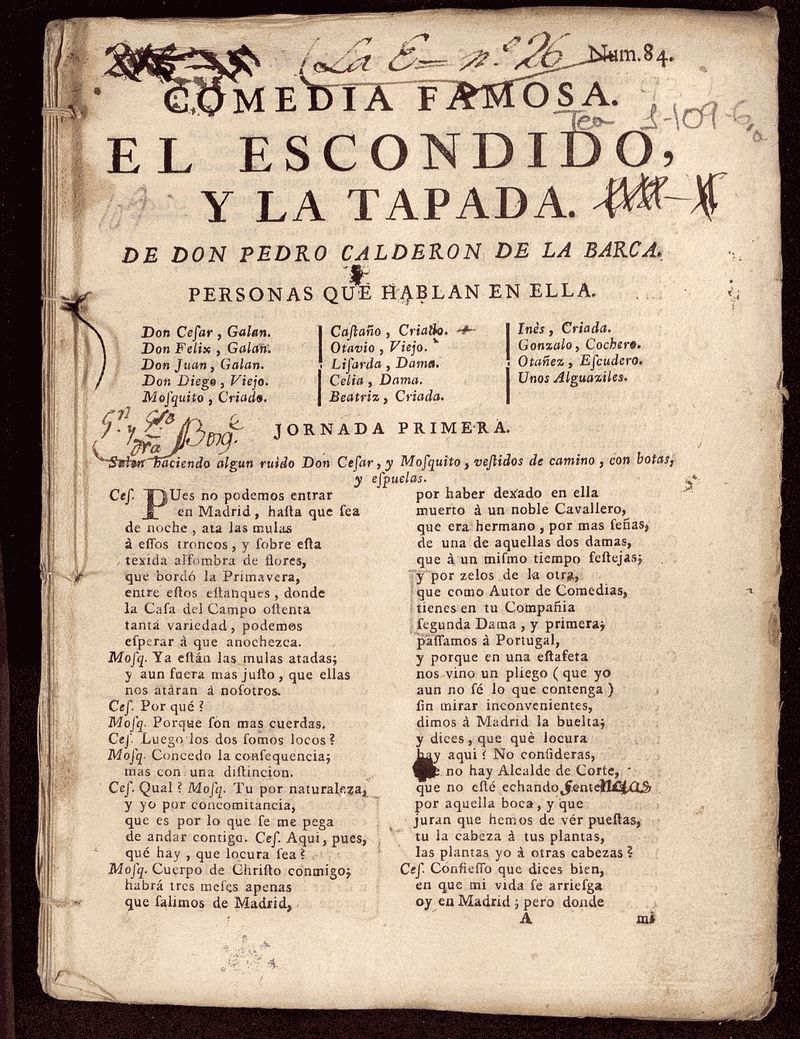 La E= nº 26
Num. 84.
COMEDIA FAMOSA.
Tea 1-109-6,
EL ESCONDIDO,
Y LA TAPADA.
109
DE DON PEDRO CALDERON DE LA BARCA.
PERSONAS QUE HABLAN EN ELLA.
Don Ceſar, Galan.
Don Felix, Galan.
Don Juan, Galan.
Don Diego, Viejo.
Moſquito, Criado.
Caſtaño, Criado.
Otavio, Viejo.
Liſarda, Dama.
Celia, Dama.
Beatriz, Criada.
Inès, Criada.
Gonzalo, Cochero.
Otañez, Eſcudero.
Unos Alguaziles.
JORNADA PRIMERA.
Salen haciendo algun ruido Don Ceſar, y Moſquito, veſtidos de camino, con botas,
y eſpuelas.
Ceſ. PUes no podemos entrar
en Madrid, haſta que ſea
de noche, ata las mulas
à eſſos troncos, y ſobre eſta
texida alfombra de flores,
que bordó la Primavera,
entre eſtos eſtanques, donde
la Caſa del Campo oſtenta
tanta variedad, podemos
eſperar à que anochezca.
Moſq. Ya eſtán las mulas atadas;
y aun fuera mas juſto, que ellas
nos atàran à noſotros.
Ceſ. Por qué?
Moſq. Porque ſon mas cuerdas.
Ceſ. Luego los dos ſomos locos?
Moſq. Concedo la conſequencia;
mas con una diſtincion.
Ceſ. Qual? Moſq. Tu por naturaleza,
y yo por concomitancia,
que es por lo que ſe me pega
de andar contigo. Ceſ. Aqui, pues,
qué hay, que locura ſea?
Moſq. Cuerpo de Chriſto conmigo;
habrá tres meſes apenas
que ſalimos de Madrid,
por haber dexado en ella
muerto à un noble Cavallero,
que era hermano, por mas ſeñas,
de una de aquellas dos damas,
que à un miſmo tiempo feſtejas;
y por zelos de la otra,
que como Autor de Comedias,
tienes en tu Compañia
ſegunda Dama, y primera;
paſſamos à Portugal,
y porque en una eſtafeta
nos vino un pliego (que yo
aun no ſé lo que contenga)
ſin mirar inconvenientes,
dimos à Madrid la buelta;
y dices, que què locura
hay aqui? No conſideras,
no hay Alcalde de Corte,
que no eſté echando ſentencias
por aquella boca, y que
juran que hemos de vér pueſtas,
tu la cabeza à tus plantas,
las plantas yo à otras cabezas?
Ceſ. Confieſſo que dices bien,
en que mi vida ſe arrieſga
oy en Madrid; pero donde
A
mi